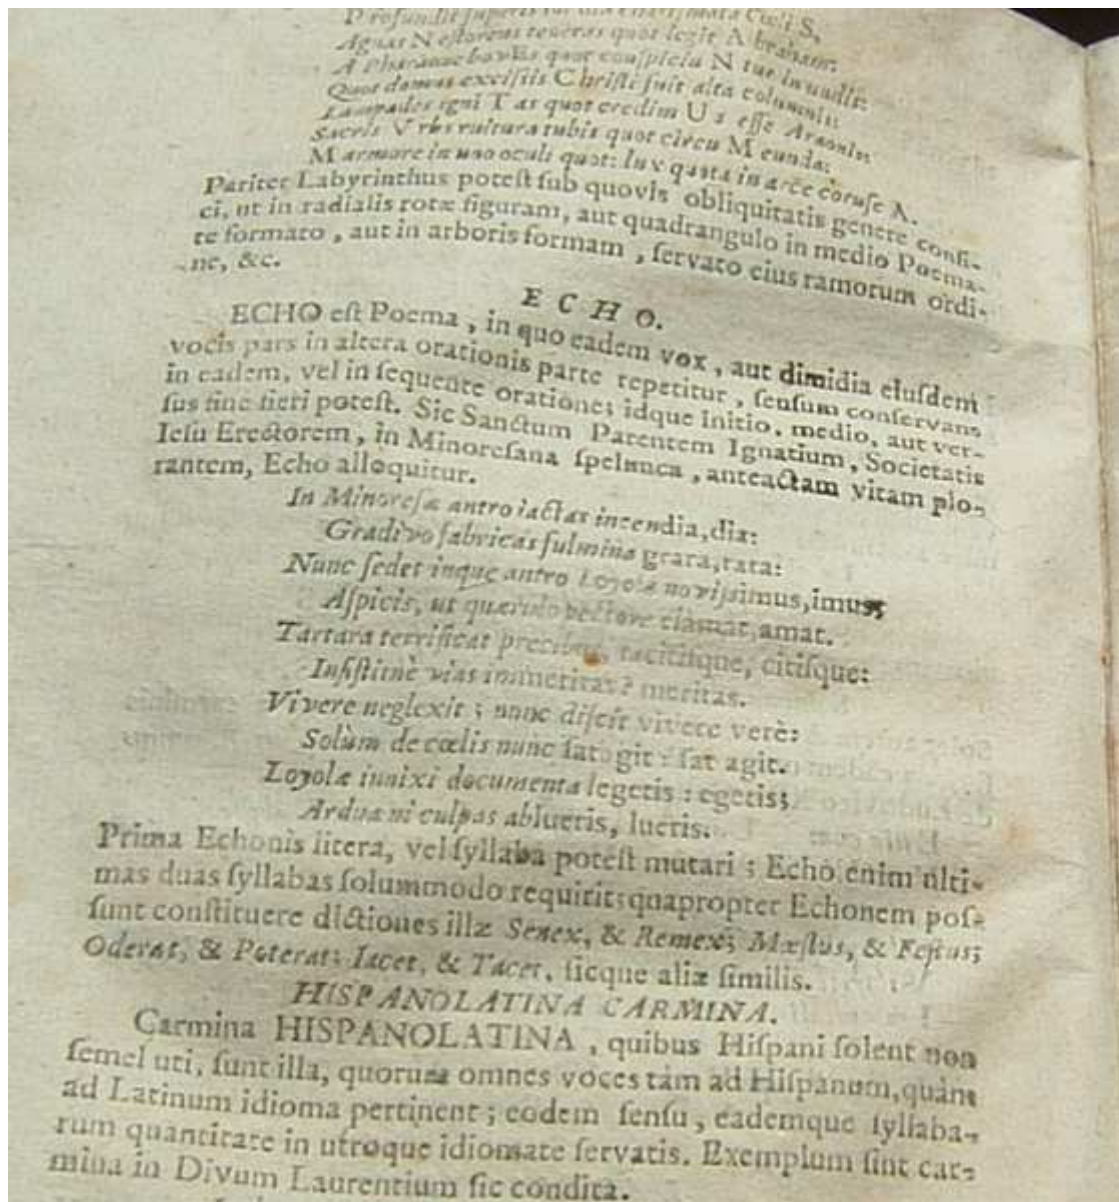 Profundit superis
Aguas Nestoreus teneras quot legit Abraham:
A Pharaone bovEs quot conspiciuNtur in undis:
Quot domus excisiis Christi fuit alta columnis:
Lampades igniTas quot credimUs esse Aaronis:
Sacris Vrbs ruitura tubis quot circuMeunda:
Marmore in uno oculi quot: lux quota in arce corusc A.
Pariter Labyrinthus potest sub quovis obliquitatis genere confi-
ci, ut in radialis rotæ figuram, aut quadrangulo in medio Poema-
te formato, aut in arboris formam, servato eius ramorum ordi-
ne, &c.
ECHO.
ECHO est Poema, in quo eadem vox, aut dimidia eiusdem
vocis pars in altera orationis parte repetitur, sensum conservans
in eadem, vel in sequente oratione; idque Initio, medio, aut ver-
sus fine fieri potest. Sic Sanctum Parentem Ignatium, Societatis
Iesu Erectorem, in Minoresana spelunca, anteactam vitam plo-
rantem, Echo alloquitur.
In Minoresæ antro iactas incendia, dia:
Gradivo fabricas fulmina grata, rata:
Nunc sedet inque antro Loyola novissimus, imus;
Aspicis, ut quærulo pectore clamat, amat.
Tartara terrificat precibus, tacitisque, citisque:
Insistitnè vias immeritas? meritas.
Vivere neglexit; nunc discit vivere verè:
Solùm de cœlis nunc satogit: sat agit.
Loyolæ innixi documenta legetis: egetis;
Ardua ni culpas ablueris, lueris.
Prima Echonis litera, vel syllaba potest mutari; Echo enim ulti-
mas duas syllabas solummodo requirit: quapropter Echonem pos-
sunt constituere dictiones illæ Senex, & Remex; Mæstus, & Festus;
Oderat, & Poterat; Iacet, & Tacet, sicque aliæ similis.
HISPANOLATINA CARMINA.
Carmina HISPANOLATINA, quibus Hispani solent non
semel uti, sunt illa, quorum omnes voces tàm ad Hispanum, quàm
ad Latinum idioma pertinent; eodem sensu, eademque syllaba-
rum quantitate in utroque idiomate servatis. Exemplum sint car-
mina in Divum Laurentium sic condita.